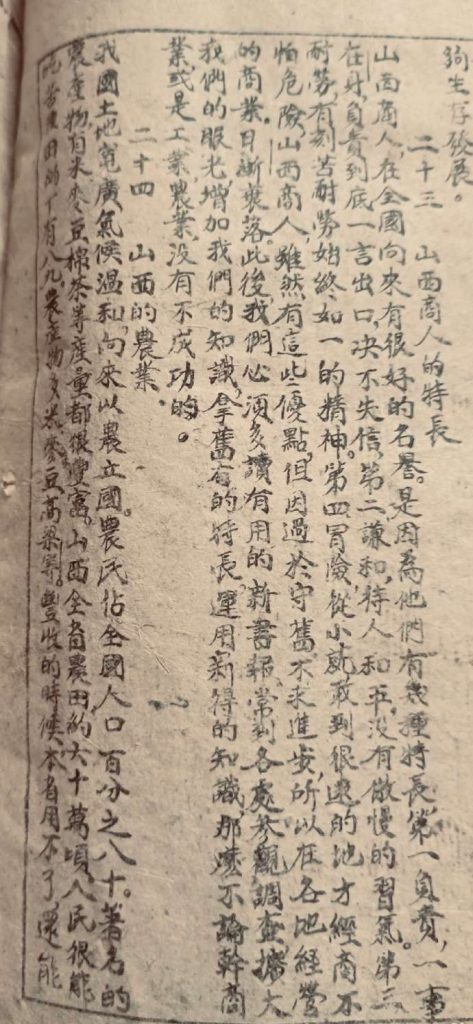 夠生存發展。
二十三　山西商人的特長
山西商人，在全國向來有很好的名譽。是因為他們有幾種特長，第一負責，一事
在身，負責到底，一言出口，决不失信，第二謙和，待人和平，沒有傲慢的習氣。第三
耐勞，有刻苦耐勞，始終如一的精神。第四冒險，從小就敢到很遠的地方經商，不
怕危險，山西商人，雖然有這些優點，但因過於守舊，不求進步，所以在各地經營
的商業，日漸衰落。此後，我們必須多讀有用的新書報，常到各處參觀調查，擴大
我們的眼光，增加我們的知識，拿舊有的特長，運用新得的知識，那麼不論幹商
業或是工業農業，沒有不成功的。
二十四　山西的農業。
我國土地寬廣，氣候温和，向來以農立國。農民佔全國人口百分之八十。著名的
農產物，有米麥豆棉茶等，產量都很豐富。山西全省農田，約六十萬頃，人民很能
吃苦，種田的十有八九，農產物多米麥豆高粱等。豐收的時候，本省用不了，還能